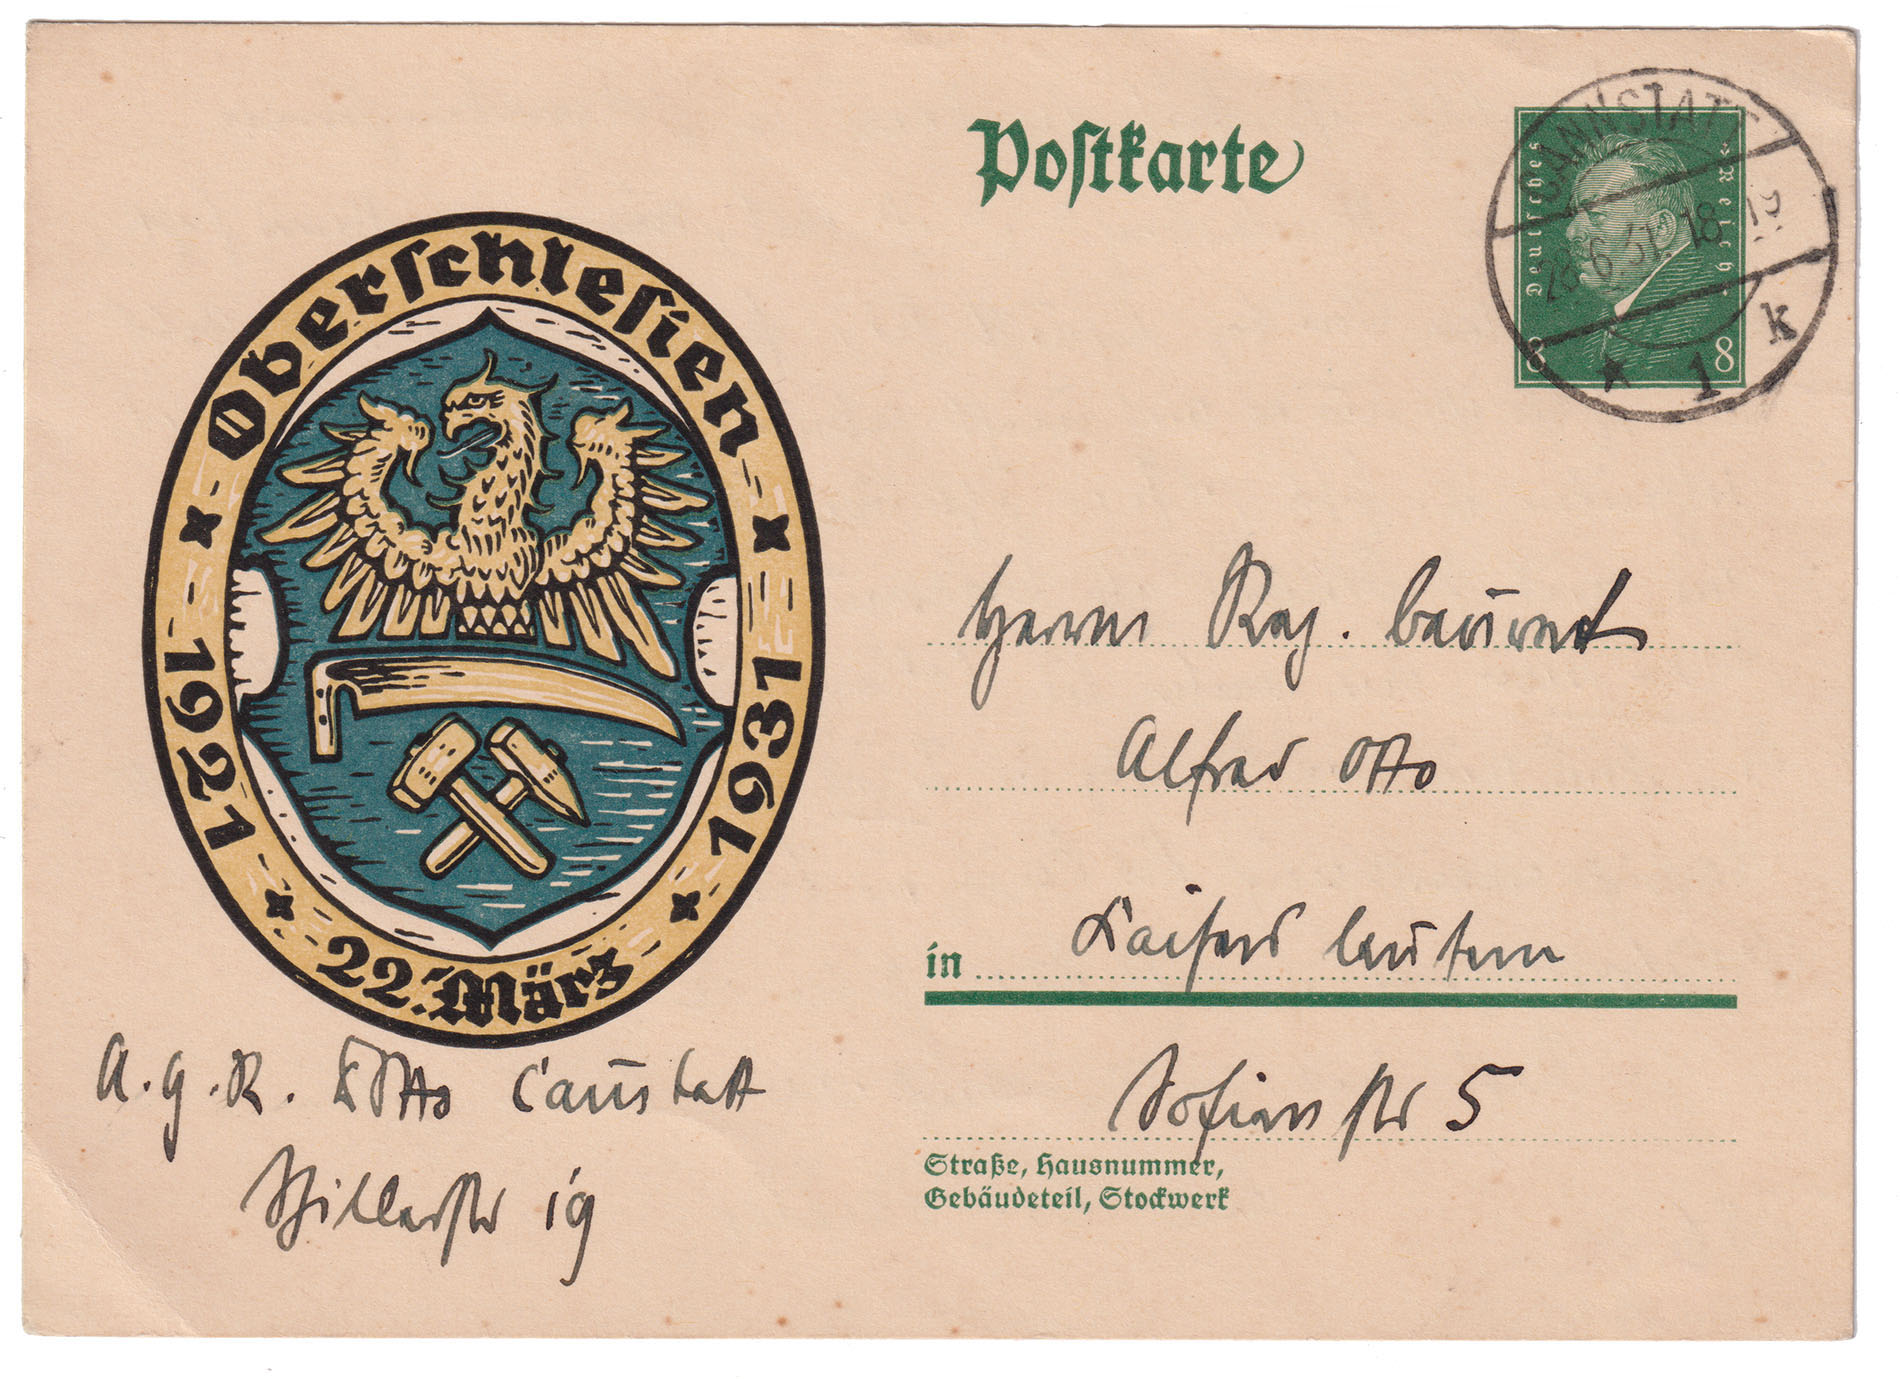 Postkarte
Deutsches Reich
8 8
CANNSTATT
28.6.31. 18
* 1 k
Oberschlesien
1921 1931
22. März
Herrn Reg. baurat
Alfred Otto
in Kaiserslautern
Sofienstr 5
Straße, Hausnummer,
Gebäudeteil, Stockwerk
A. G. R. Otto Cannstatt
Schillerstr 19